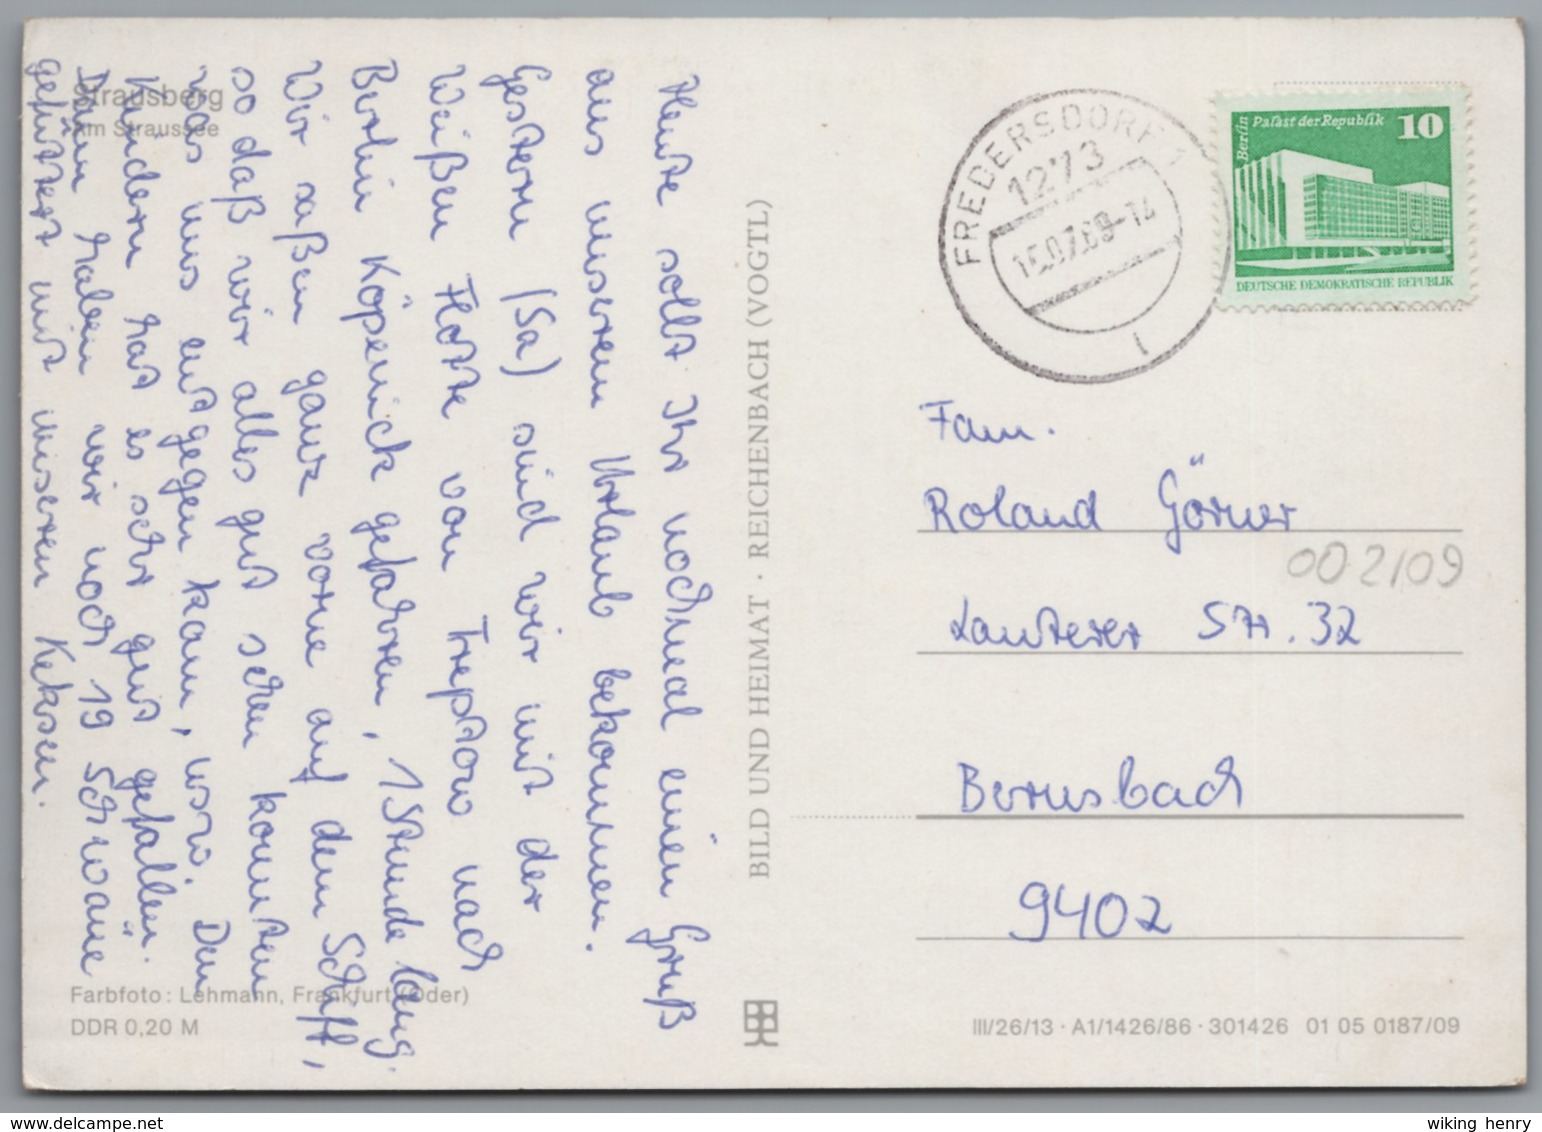 Strausberg
Am Straussee
Heute sollt Ihr nochmal einen Gruß
aus unserem Urlaub bekommen.
Gestern (Sa) sind wir mit der
Weißen Flotte von Treptow nach
Berlin Köpenick gefahren, 1 Stunde lang.
Wir saßen ganz vorne auf dem Schiff,
so daß wir alles gut sehen konnten
was uns entgegen kam, usw. Den
Kindern hat es sehr gut gefallen.
Dann haben wir noch 19 Schwäne
gefüttert mit unseren Keksen.
Farbfoto: Lehmann, Frankfurt (Oder)
DDR 0,20 M
BILD UND HEIMAT · REICHENBACH (VOGTL)
FREDERSDORF 1
1273
15.07.89-14
1
Berlin
Palast der Republik
10
DEUTSCHE DEMOKRATISCHE REPUBLIK
Fam.
Roland Görner
002109
Lauterer Str. 32
Bernsbach
9402
III/26/13 · A1/1426/86 · 301426 01 05 0187/09
wiking henry